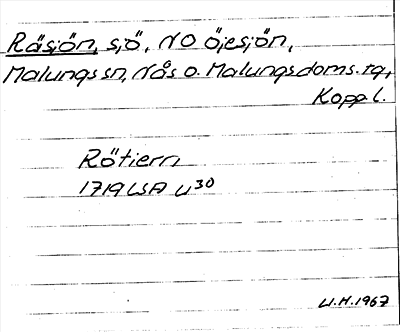 Räsjön, sjö, NO Öjesjön,
Malungs sn, Nås o. Malungs doms. tg,
Kopp l.
Rötiern
1719 LSA U 30
U.H. 1967